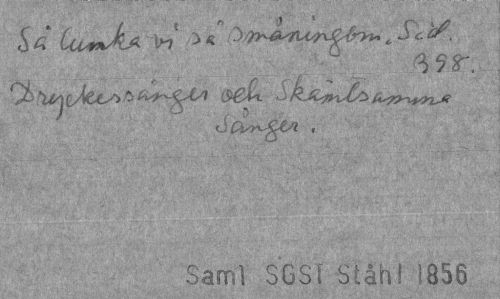 Så lunka vi så småningom. Sid.
398.
Dryckessånger och Skämtsamma
Sånger.
Saml SGST Ståhl 1856